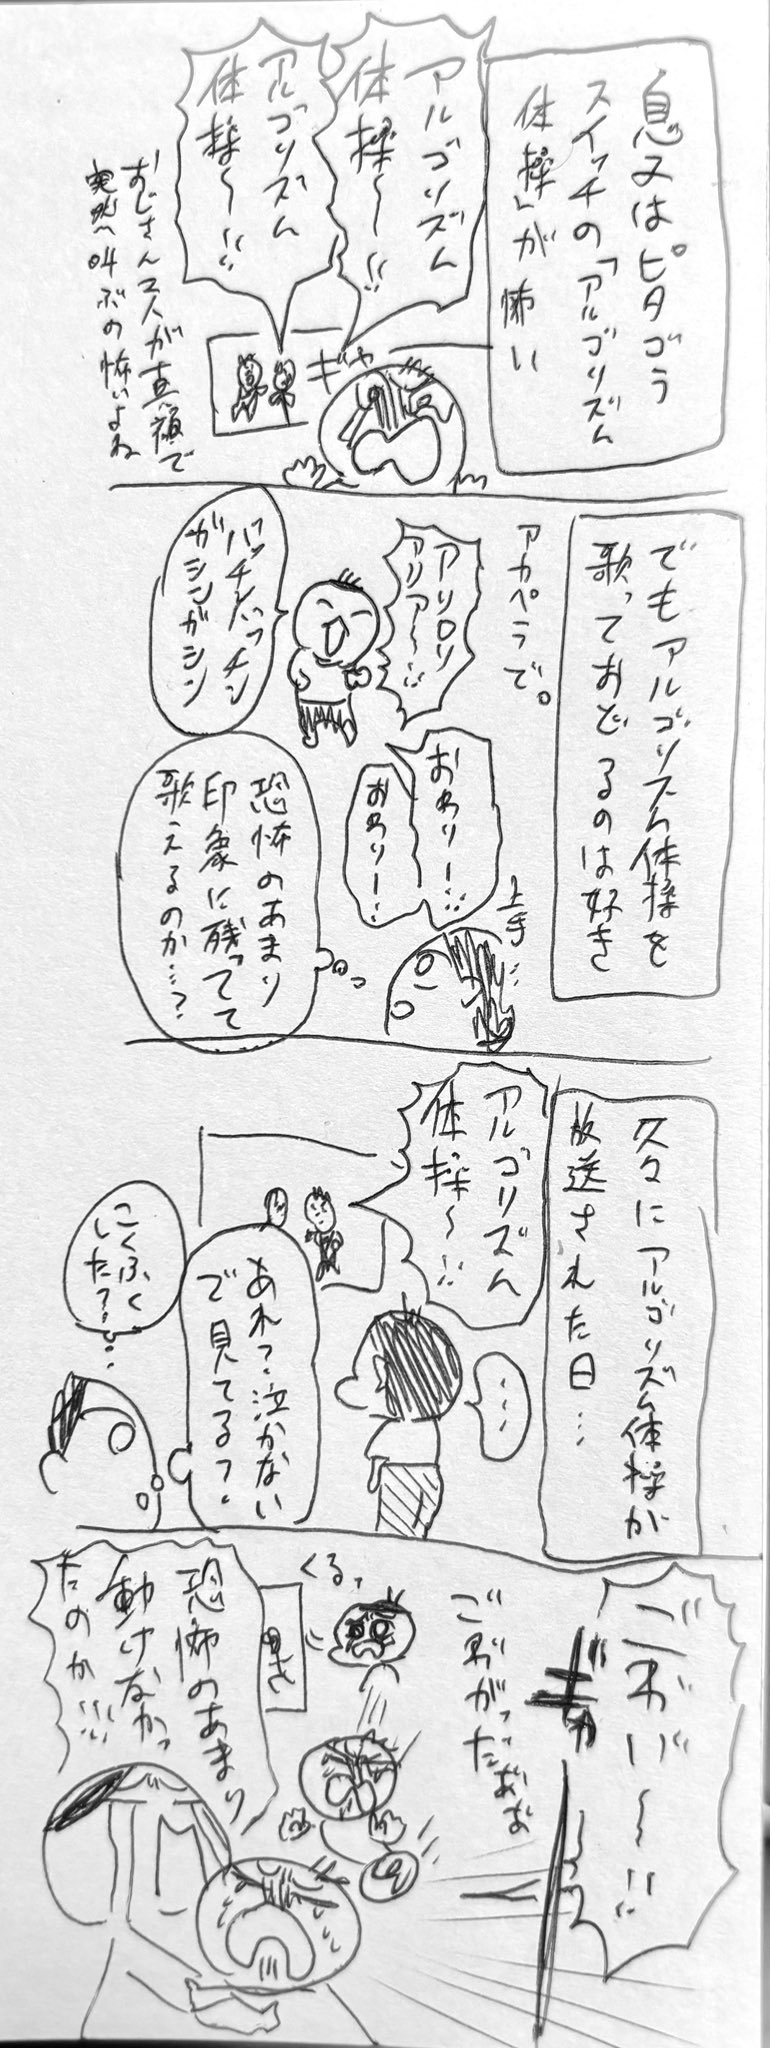 息子はピタゴラ
スイッチの「アルゴリズム
体操」が怖い
アルゴリズム
体操〜!!
アルゴリズム
体操〜!!
ギャー
おじさん2人が真顔で
突然叫ぶの怖いよね
でもアルゴリズム体操を
歌っておどるのは好き
アカペラで。
アリロリ
アリア〜!!
パッチンパッチン
ガシンガシン
おわりー!!
おわりー!!
上手…
恐怖のあまり
印象に残ってて
歌えるのか…?
久々にアルゴリズム体操が
放送された日…
アルゴリズム
体操〜!!
…
あれ?泣かない
で見てる?
こくふく
した?
ごわい〜!!
ギャー
ごわがったぁぁ
くるっ
恐怖のあまり
動けなかっ
たのか!!!